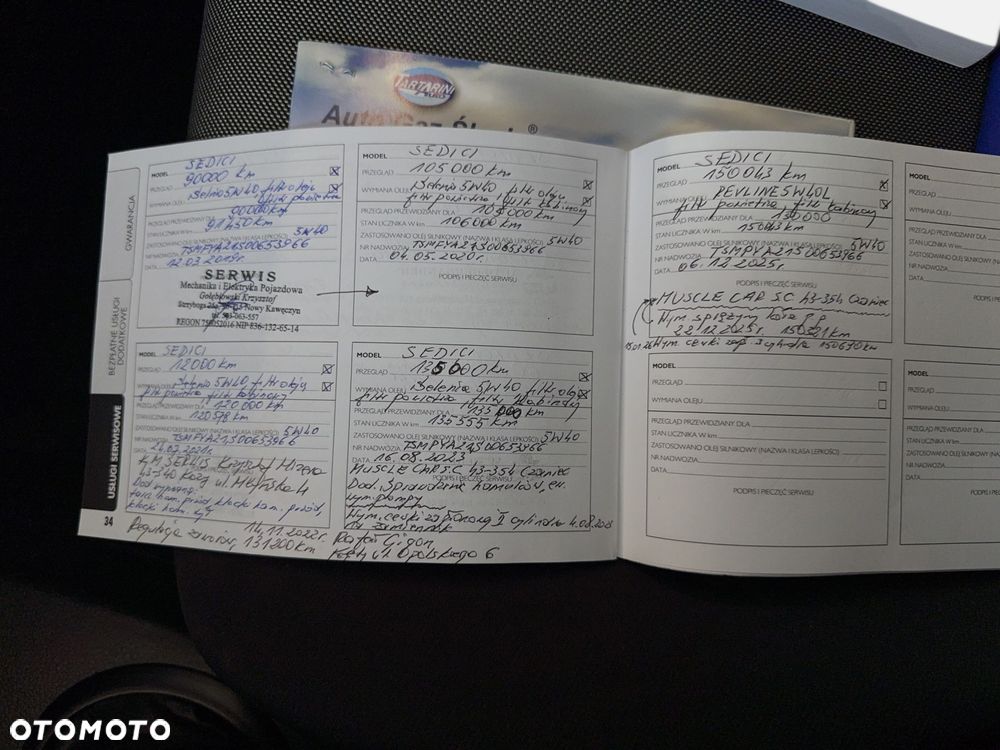 TARTARINI
AUTO
GWARANCJA
BEZPŁATNE USŁUGI DODATKOWE
USŁUGI SERWISOWE
34
MODEL SEDICI
PRZEGLĄD 90000 km
WYMIANA OLEJU Selenia 5W40 filtr oleju
filtr powietrza
PRZEGLĄD PRZEWIDZIANY DLA 90000 km
STAN LICZNIKA W km 91450 km
ZASTOSOWANO OLEJ SILNIKOWY (NAZWA I KLASA LEPKOŚCI) 5W40
NR NADWOZIA TSMFYA21S00653966
DATA 12.03.2019r.
SERWIS
Mechanika i Elektryka Pojazdowa
Gołębiowski Krzysztof
Nowy Kawęczyn
REGON 750052016 NIP 836-132-65-14
MODEL SEDICI
PRZEGLĄD 105000 km
WYMIANA OLEJU Selenia 5W40 filtr oleju
filtr powietrza, filtr kabinowy
PRZEGLĄD PRZEWIDZIANY DLA 105000 km
STAN LICZNIKA W km 106000 km
ZASTOSOWANO OLEJ SILNIKOWY (NAZWA I KLASA LEPKOŚCI) 5W40
NR NADWOZIA TSMFYA21S00653966
DATA 04.05.2020r.
PODPIS I PIECZĘĆ SERWISU
MODEL SEDICI
PRZEGLĄD 12000 km
WYMIANA OLEJU Selenia 5W40 filtr oleju
filtr powietrza filtr kabinowy
PRZEGLĄD PRZEWIDZIANY DLA 120 000 km
STAN LICZNIKA W km 120598 km
ZASTOSOWANO OLEJ SILNIKOWY (NAZWA I KLASA LEPKOŚCI) 5W40
NR NADWOZIA TSMFYA21S00653966
DATA 24.02.2021r.
SERWIS Krzysztof
43-340 Kozy ul.
Regulacja zaworów, 14.11.2022r.
131200 km
MODEL SEDICI
PRZEGLĄD 135000 km
WYMIANA OLEJU Selenia 5W40 filtr oleju
filtr powietrza filtr kabinowy
PRZEGLĄD PRZEWIDZIANY DLA 135 000 km
STAN LICZNIKA W km 135555 km
ZASTOSOWANO OLEJ SILNIKOWY (NAZWA I KLASA LEPKOŚCI) 5W40
NR NADWOZIA TSMFYA21S00653966
DATA 16.08.2023
MUSCLE CAR S.C. 43-354 Czaniec
Dod. Sprawdzenie hamulców, ew.
wym. pompy
Wym. cewki zapłonowej I cylindra 4.08.2023
Rafał Gigoń
Kęty ul. Opolskiego 6
MODEL SEDICI
PRZEGLĄD 150043 km
WYMIANA OLEJU REVLINE 5W40L
filtr powietrza, filtr kabinowy
PRZEGLĄD PRZEWIDZIANY DLA 150 050
STAN LICZNIKA W km 150043 km
ZASTOSOWANO OLEJ SILNIKOWY (NAZWA I KLASA LEPKOŚCI) 5W40
NR NADWOZIA TSMFYA21S00653966
DATA 06.12.2025r.
PODPIS I PIECZĘĆ SERWISU
MUSCLE CAR S.C. 43-354 Czaniec
Wym sprężyny
22.12.2025r. 150321 km
Wym. cewki zapł. 3 cylindra 150690 km
MODEL
PRZEGLĄD
WYMIANA OLEJU
PRZEGLĄD PRZEWIDZIANY DLA
STAN LICZNIKA W km
ZASTOSOWANO OLEJ SILNIKOWY (NAZWA I KLASA LEPKOŚCI)
NR NADWOZIA
DATA
PODPIS I PIECZĘĆ SERWISU
MODEL
PRZEGLĄD
WYMIANA OLEJU
PRZEGLĄD PRZEWIDZIANY
STAN LICZNIKA W km
ZASTOSOWANO OLEJ SILN
NR NADWOZIA
DATA
MODEL
PRZEGLĄD
WYMIANA OLEJU
PRZEGLĄD PRZEWIDZIA
STAN LICZNIKA W km
ZASTOSOWANO OLEJ SI
NR NADWOZIA
DATA
OTOMOTO